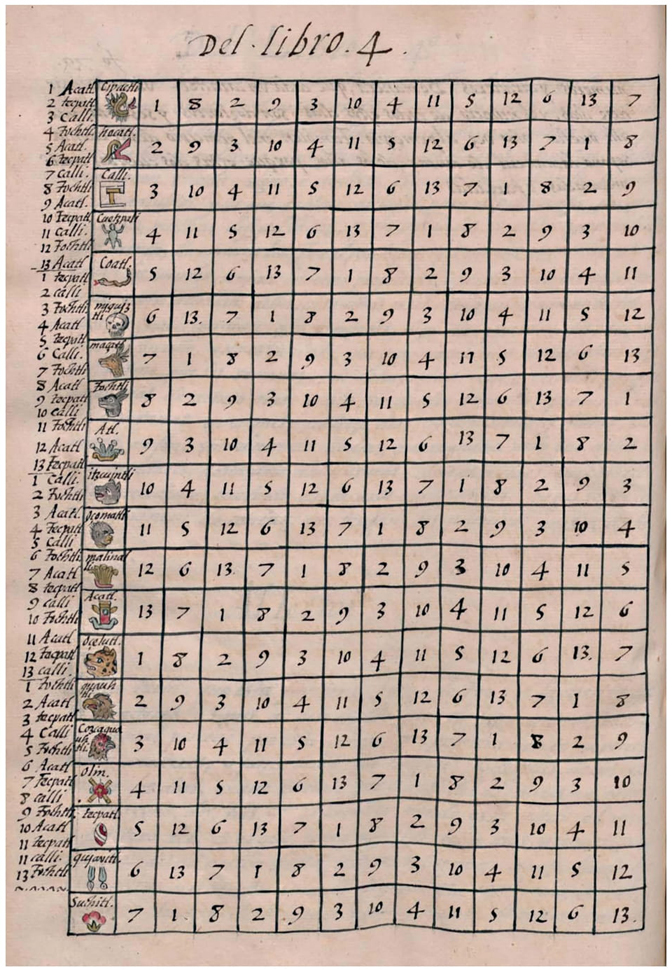 Del libro. 4.
1 Acatl.
2 tecpatl
3 Calli
4 Tochtli
5 Acatl.
6 tecpatl
7 Calli.
8 Tochtli
9 Acatl.
10 Tecpatl
11 Calli.
12 Tochtli
13 Acatl
1 tecpatl
2 calli
3 Tochtli
4 Acatl
5 tecpatl
6 Calli.
7 Tochtli
8 Acatl
9 tecpatl
10 calli
11 Tochtli
12 Acatl
13 tecpatl
1 Calli.
2 Tochtli
3 Acatl
4 Tecpatl
5 Calli
6 Tochtli
7 Acatl
8 tecpatl
9 calli
10 Tochtli
11 Acatl
12 Tecpatl
13 calli
1 Tochtli
2 Acatl
3 tecpatl
4 Calli
5 Tochtli
6 Acatl
7 Tecpatl
8 calli
9 Tochtli
10 Acatl
11 tecpatl
11 calli.
13 Tochtli
Cipactli 1 8 2 9 3 10 4 11 5 12 6 13 7
hecatl 2 9 3 10 4 11 5 12 6 13 7 1 8
Calli. 3 10 4 11 5 12 6 13 7 1 8 2 9
4 11 5 12 6 13 7 1 8 2 9 3 10
Coatl. 5 12 6 13 7 1 8 2 9 3 10 4 11
miquiztli 6 13. 7 1 8 2 9 3 10 4 11 5 12
7 1 8 2 9 3 10 4 11 5 12 6 13
Tochtli 8 2 9 3 10 4 11 5 12 6 13 7 1
Atl. 9 3 10 4 11 5 12 6 13 7 1 8 2
itzcuintli 10 4 11 5 12 6 13 7 1 8 2 9 3
Oçomatli 11 5 12 6 13 7 1 8 2 9 3 10 4
malinalli 12 6 13. 7 1 8 2 9 3 10 4 11 5
Acatl. 13 7 1 8 2 9 3 10 4 11 5 12 6
Ocelutl. 1 8 2 9 3 10 4 11 5 12 6 13. 7
quauhtli 2 9 3 10 4 11 5 12 6 13 7 1 8
3 10 4 11 5 12 6 13 7 1 8 2 9
Olin. 4 11 5 12 6 13 7 1 8 2 9 3 10
tecpatl. 5 12 6 13 7 1 8 2 9 3 10 4 11
quiavitl. 6 13 7 1 8 2 9 3 10 4 11 5 12
Suchitl. 7 1 8 2 9 3 10 4 11 5 12 6 13.